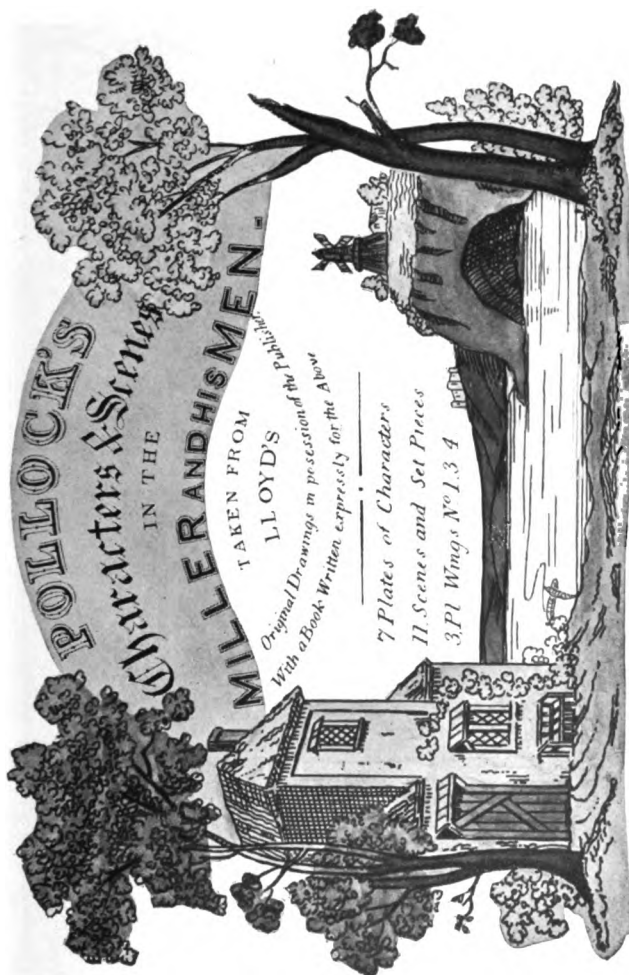 POLLOCK'S
Characters & Scenes
IN THE
MILLER AND HIS MEN.
TAKEN FROM
LLOYD'S
Original Drawings in posession of the Publisher.
With a Book Written expressly for the Above
7 Plates of Characters
11. Scenes and Set Pieces
3. Pl Wings No 1. 3 4